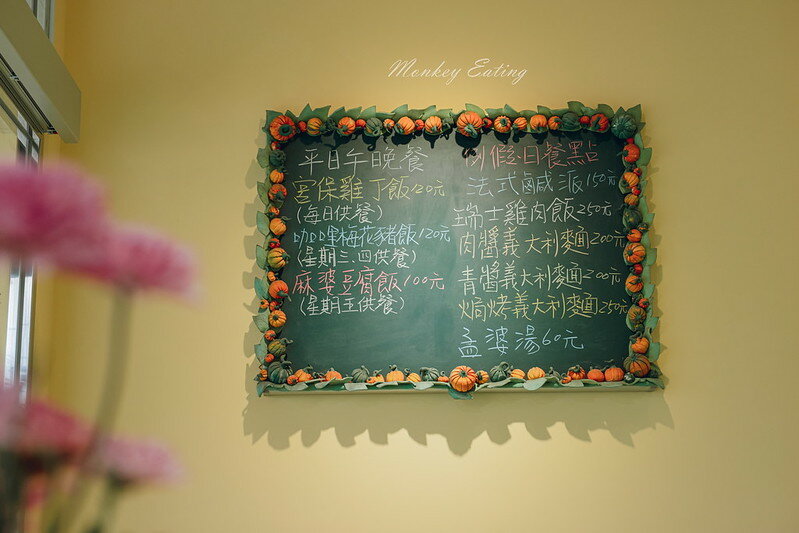 Monkey Eating
平日午晚餐
宮保雞丁飯120元
(每日供餐)
咖哩梅花豬飯120元
(星期三.四供餐)
麻婆豆腐飯100元
(星期五供餐)
例假日餐點
法式鹹派150元
瑞士雞肉飯250元
肉醬義大利麵200元
青醬義大利麵200元
焗烤義大利麵250元
孟婆湯60元